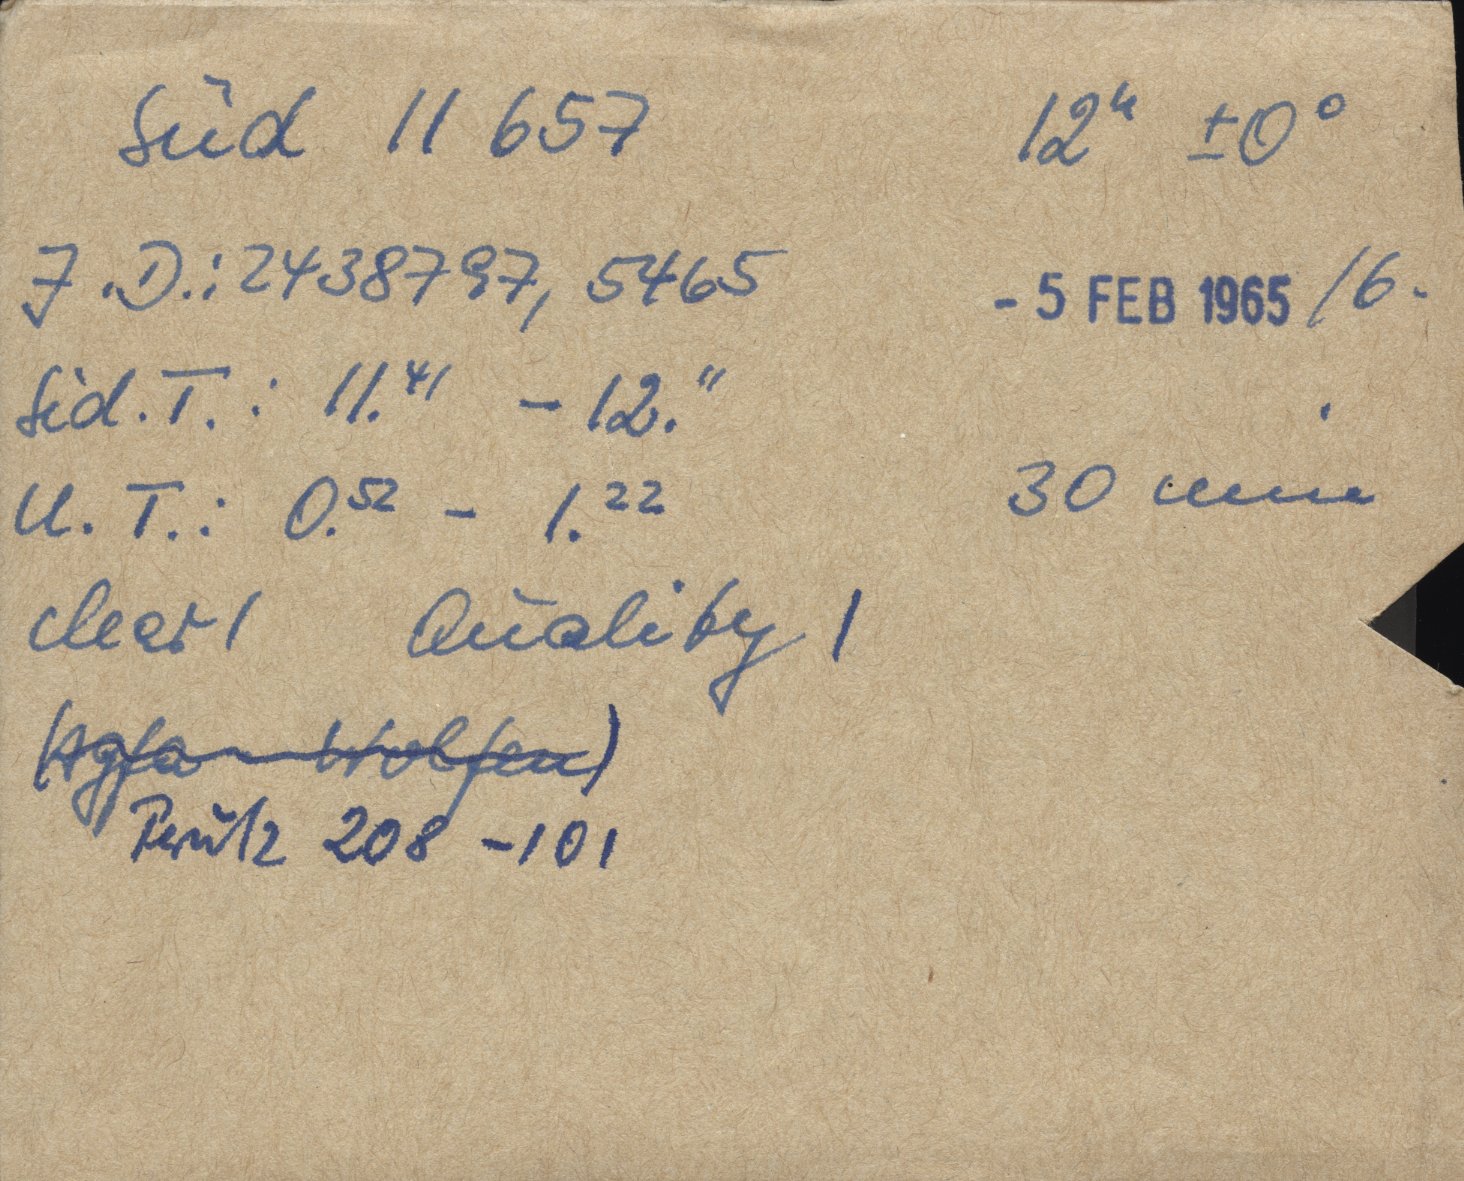 Süd 11 657 12ʰ ±0°
J.D.: 2438797, 5465 - 5 FEB 1965 /6.
Sid. T.: 11.⁴¹ - 12.¹¹
U. T.: 0.⁵² - 1.²² 30 min
clear 1 Quality 1
(Agfa - Wolfen)
Perutz 208 -101